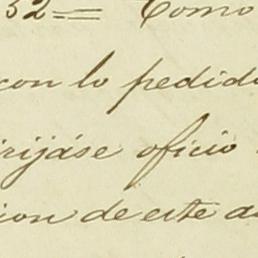 32= Como
con lo pedid
irijáse oficio
ion de este a